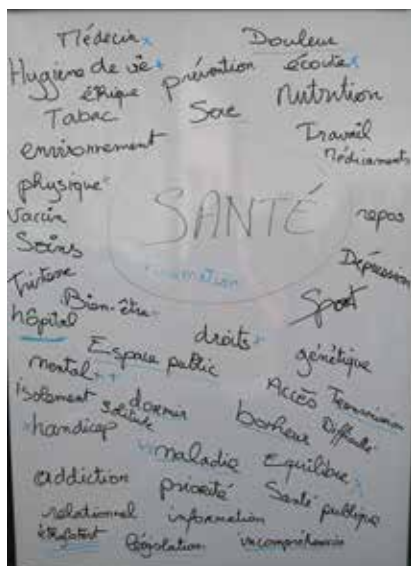 Médecin x
Douleur
Hygiène de vie +
prévention
écoute x
éthique
Nutrition
Tabac
Soie
Travail
environnement
Médicaments
physique
SANTÉ
Vaccin
repos
Soins
Dépression
Tristesse
Formation
Bien-être
Sport
hôpital
droits +
Espace public
génétique
mental ++
Accès
Transmission
Isolement
Solitude
dormir
bonheur
Difficulté
handicap
maladie
Equilibre
addiction
priorité
Santé publique
relationnel
information
législation
incompréhension